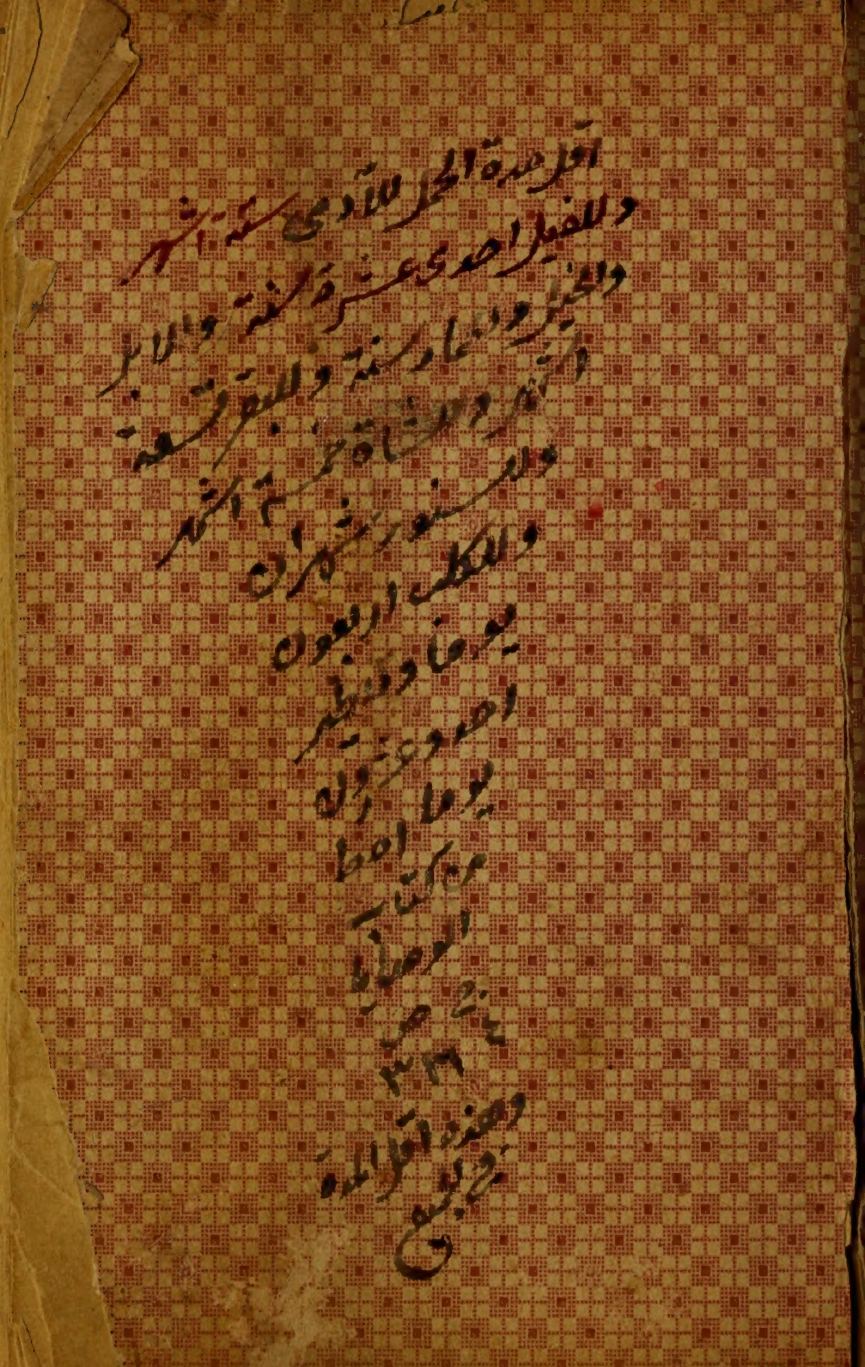 اقل مدة الحمل للآدمي ستة اشهر
وللفيل احدى عشرة سنة والابل
والخيل والحمار سنة وللبقر تسعة
اشهر وللشاة خمسة اشهر
وللسنور شهران
وللكلب اربعون
يوما وللطير
احد وعشرون
يوما اهط
من كتاب
الوصايا
ج ص
٤ ٣٢
وهذه اقل المدة
في الجميع